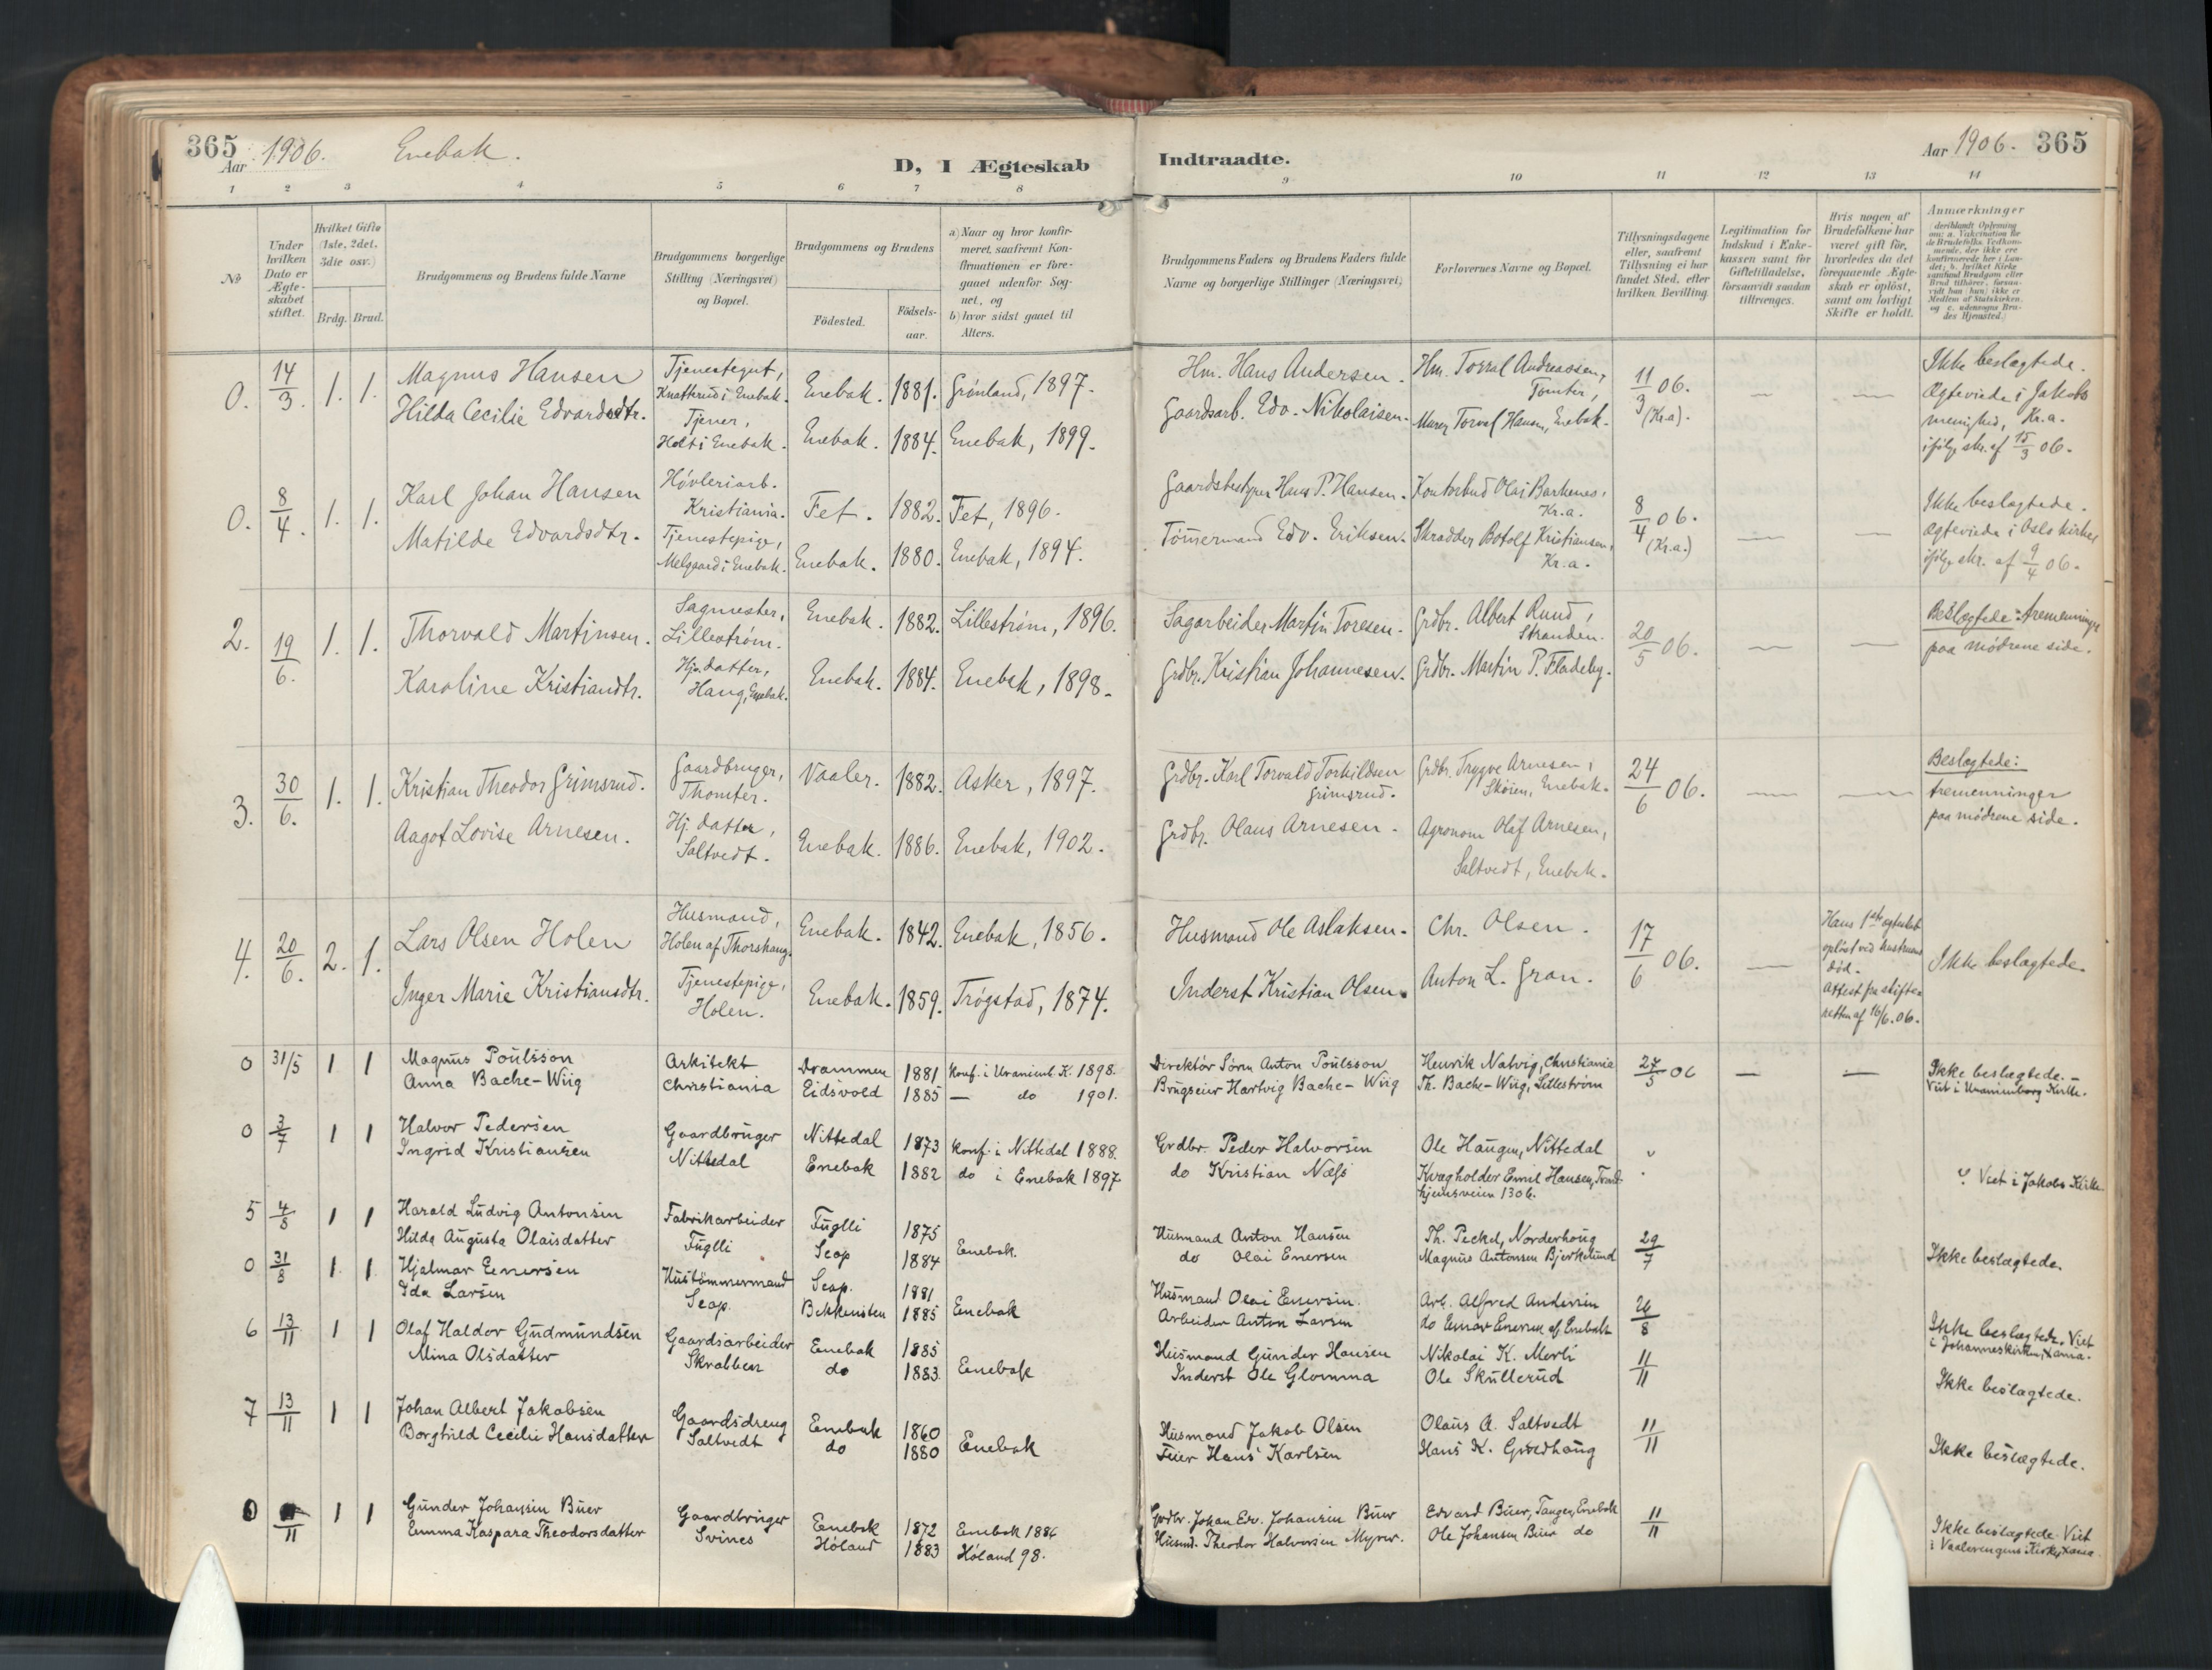 365
Aar 1906. Enebak.
D, I Ægteskab Indtraadte.
Aar 1906. 365
1 2 3 4 5 6 7 8 9 10 11 12 13 14
№
Under hvilken Dato er Ægte-skabet stiftet.
Hvilket Gifte (1ste, 2det, 3die osv.)
Brdg. Brud.
Brudgommens og Brudens fulde Navne
Brudgommens borgerlige Stilling (Næringsvei) og Bopæl.
Brudgommens og Brudens
Födested. Födsels-aar.
a) Naar og hvor konfir-meret, saafremt Kon-firmationen er fore-gaaet udenfor Sog-net, og
b) hvor sidst gaaet til Alters.
Brudgommens Faders og Brudens Faders fulde Navne og borgerlige Stillinger (Næringsvei)
Forlovernes Navne og Bopæl.
Tillysningsdagene eller, saafremt Tillysning ei har fundet Sted, efter hvilken Bevilling.
Legitimation for Indskud i Enke-kassen samt for Giftetilladelse, forsaavidt saadan tiltrænges.
Hvis nogen af Brudefolkene har været gift för, hvorledes da det foregaaende Ægte-skab er oplöst, samt om lovligt Skifte er holdt.
Anmærkninger
deriblandt Oplysning om: a. Vakcination for de Brudefolks Vedkom-mende, der ikke ere konfirmerede her i Lan-det; b. hvilket Kirke-samfund Brudgom eller Brud tilhörer, forsaa-vidt han (hun) ikke er Medlem af Statskirken, og c. udensogns Bru-des Hjemsted.)
0. 14/3. 1. 1. Magnus Hansen Tjenestegut, Knatterud i Enebak. Enebak. 1881. Grønland, 1897. Hm. Hans Andersen. Hm. Torval Andreassen, Tomter, 11/3 06. (Kr.a). — — Ikke beslægtede.
Hilda Cecilie Edvardsdtr. Tjener, Holt i Enebak. Enebak. 1884. Enebak, 1899. Gaardsarb. Edv. Nikolaisen. Murer Torval Hansen, Enebak. Ægteviede i Jakobs menighed, Kr.a. ifølge skr. af 15/3 06.
0. 8/4. 1. 1. Karl Johan Hansen Høvleriarb. Kristiania. Fet. 1882. Fet, 1896. Gaardsbestyrer Hans P. Hansen. Kontorbud Olai Barkenes, Kr.a. 8/4 06. (Kr.a.) — — Ikke beslægtede.
Matilde Edvardsdtr. Tjenestepige, Melgaard i Enebak. Enebak. 1880. Enebak, 1894. Tømmermand Edv. Eriksen. Skrædder Botolf Kristiansen, Kr.a. Ægteviede i Oslo kirke ifølge skr. af 9/4 06.
2. 19/6. 1. 1. Thorvald Martinsen. Sagmester, Lillestrøm. Enebak. 1882. Lillestrøm, 1896. Sagarbeider Martin Toresen. Grdbr. Albert Rud, Stranden. 20/5 06. — — Beslægtede: tremenninger
Karoline Kristiandtr. Hj. datter, Haug, Enebak. Enebak. 1884. Enebak, 1898. Grdbr. Kristian Johannesen. Grdbr. Martin P. Fladeby. paa mødrene side.
3. 30/6. 1. 1. Kristian Theodor Grimsrud. Gaardbruger, Thomter. Vaaler. 1882. Asker, 1897. Grdbr. Karl Torvald Torkildsen Grimsrud. Grdbr. Trygve Arnesen, Skøien, Enebak. 24/6 06. — — Beslægtede: tremenninger
Aagot Lovise Arnesen. Hj. datter, Saltvedt. Enebak. 1886. Enebak, 1902. Grdbr. Olaus Arnesen. Agronom Olaf Arnesen, Saltvedt, Enebak. paa mødrene side.
4. 20/6. 2. 1. Lars Olsen Holen Husmand, Holen af Thorshaug. Enebak. 1842. Enebak, 1856. Husmand Ole Aslaksen. Chr. Olsen. 17/6 06. — Hans 1ste ægteskab opløst ved hustruens død. Attest fra skifteretten af 16/6. 06. Ikke beslægtede.
Inger Marie Kristiansdtr. Tjenestepige, Holen. Enebak. 1859. Trøgstad, 1874. Inderst Kristian Olsen. Anton L. Gran.
0 31/5 1 1 Magnus Poulsson Arkitekt Drammen 1881 Konf. i Uranienb. K. 1898. Direktör Sörn Anton Poulsson Henrik Natvig, Christiania 27/5 06 — — Ikke beslægtede. —
Anna Bache-Wiig Christiania Eidsvold 1885 — do 1901. Brugseier Hartvig Bache-Wiig Th. Bache-Wiig, Lilleström Viet i Uranienborg Kirke.
0 3/7 1 1 Halvor Pedersen Gaardbruger Nittedal 1873 Konf. i Nittedal 1888. Grdbr. Peder Halvorsen Ole Haugen, Nittedal
Ingrid Kristiansen Nittedal Enebak 1882 do i Enebak 1897 do Kristian Næss Kvægholder Emil Hansen, Trond-hjemsveien 130b. Viet i Jakobs Kirke.
5 4/8 1 1 Harald Ludvig Antonsen Fabrikarbeider Fuglli 1875 Husmand Anton Hansen Th. Peckel, Norderhoug 29/7
Hilda Augusta Olaisdatter Fuglli Scop 1884 Enebak. do Olai Enersen Magnus Antonsen Bjerkelund Ikke beslægtede.
0 31/8 1 1 Hjalmar Enersen Hustömmermand Scop. 1881 Husmand Olai Enersen. Arb. Alfred Andersen 26/8
Ida Larsen Scop. Bekkensten 1885 Enebak Arbeider Anton Larsen do Einar Enersen af Enebak Ikke beslægtede. Viet i Johanneskirken, Xania.
6 13/11 1 1 Olaf Haldor Gudmundsen Gaardsarbeider Enebak 1885 Husmand Gunder Hansen Nikolai K. Merli 11/11
Mina Olsdatter Skrabben do 1883. Enebak Inderst Ole Glomma Ole Skullerud Ikke beslægtede.
7 13/11 1 1 Johan Albert Jakobsen Gaardsdreng Enebak 1860 Husmand Jakob Olsen Olaus A. Saltvedt 11/11
Borghild Cecilie Hansdatter Saltvedt do 1880 Enebak Feier Hans Karlsen Hans K. Ikke beslægtede.
0 /11 1 1 Gunder Johansen Buer Gaardbruger Enebak 1872 Enebak 1886 Grdbr. Johan Edv. Johansen Buer Edvard Buer, Tangen, Enebak 11/11
Emma Kaspara Theodorsdatter Svines Höland 1883 Höland 98. Husmd. Theodor Halvorsen Myrer. Ole Johansen Buer do Ikke beslægtede. Viet i Vaalerengens Kirke, Xania.